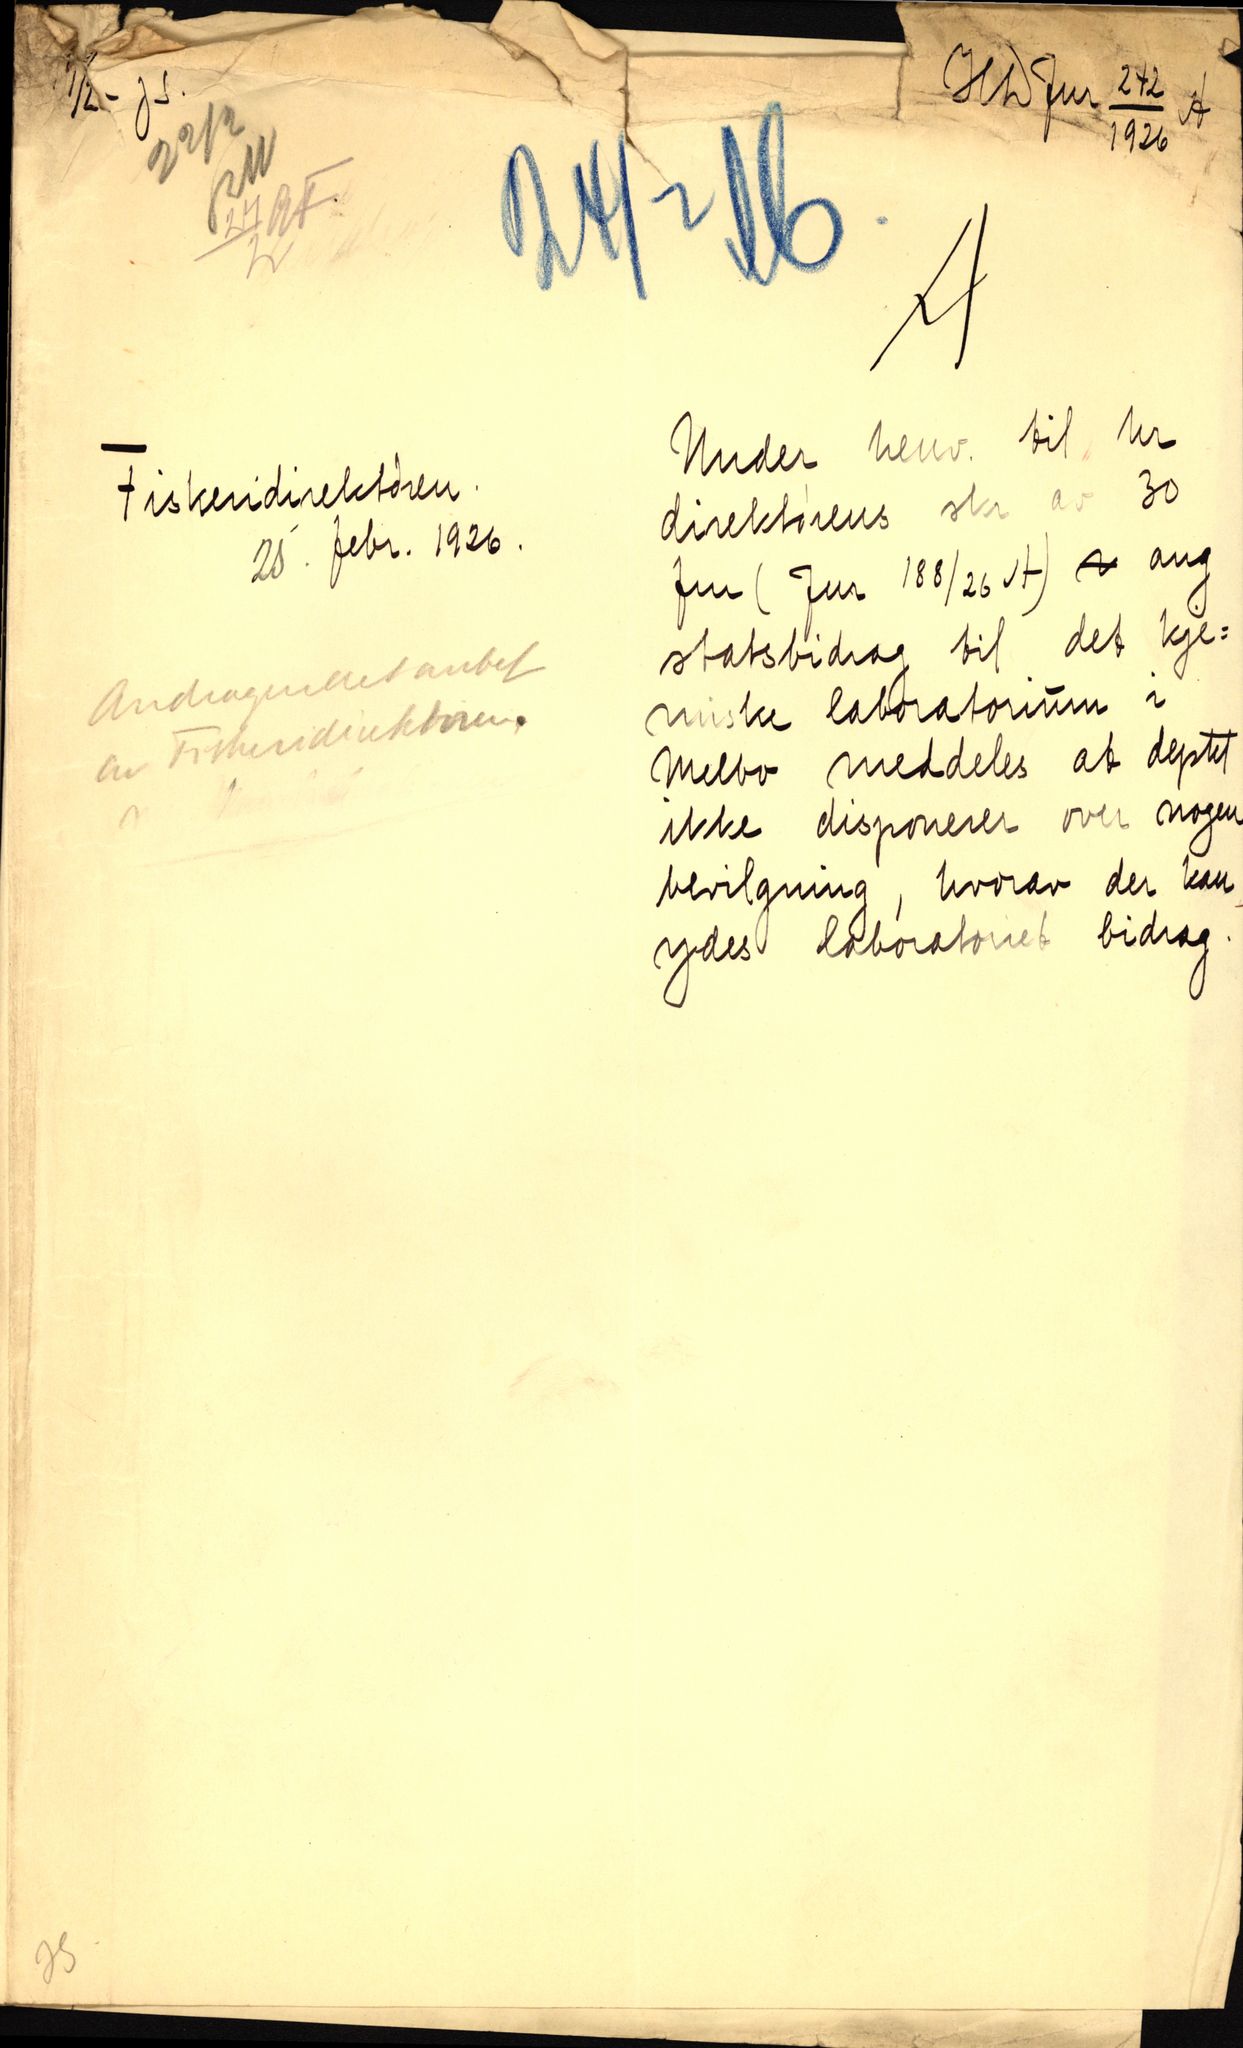 1/2 - JS.
22/2
27/2 RF.
HID Jnr 242/1926 A
24/2 26.
A
Fiskeridirektøren.
25. febr. 1926.
Andragendet anbef
av Fiskeridirektøren.
Under henv. til hr
direktørens skr av 30
f m ( Jnr 188/26 A) ang
statsbidrag til det kje=
miske laboratorium i
Melbo meddeles at deptet
ikke disponerer over nogen
bevilgning, hvorav der kan
ydes laboratoriet bidrag.
JS